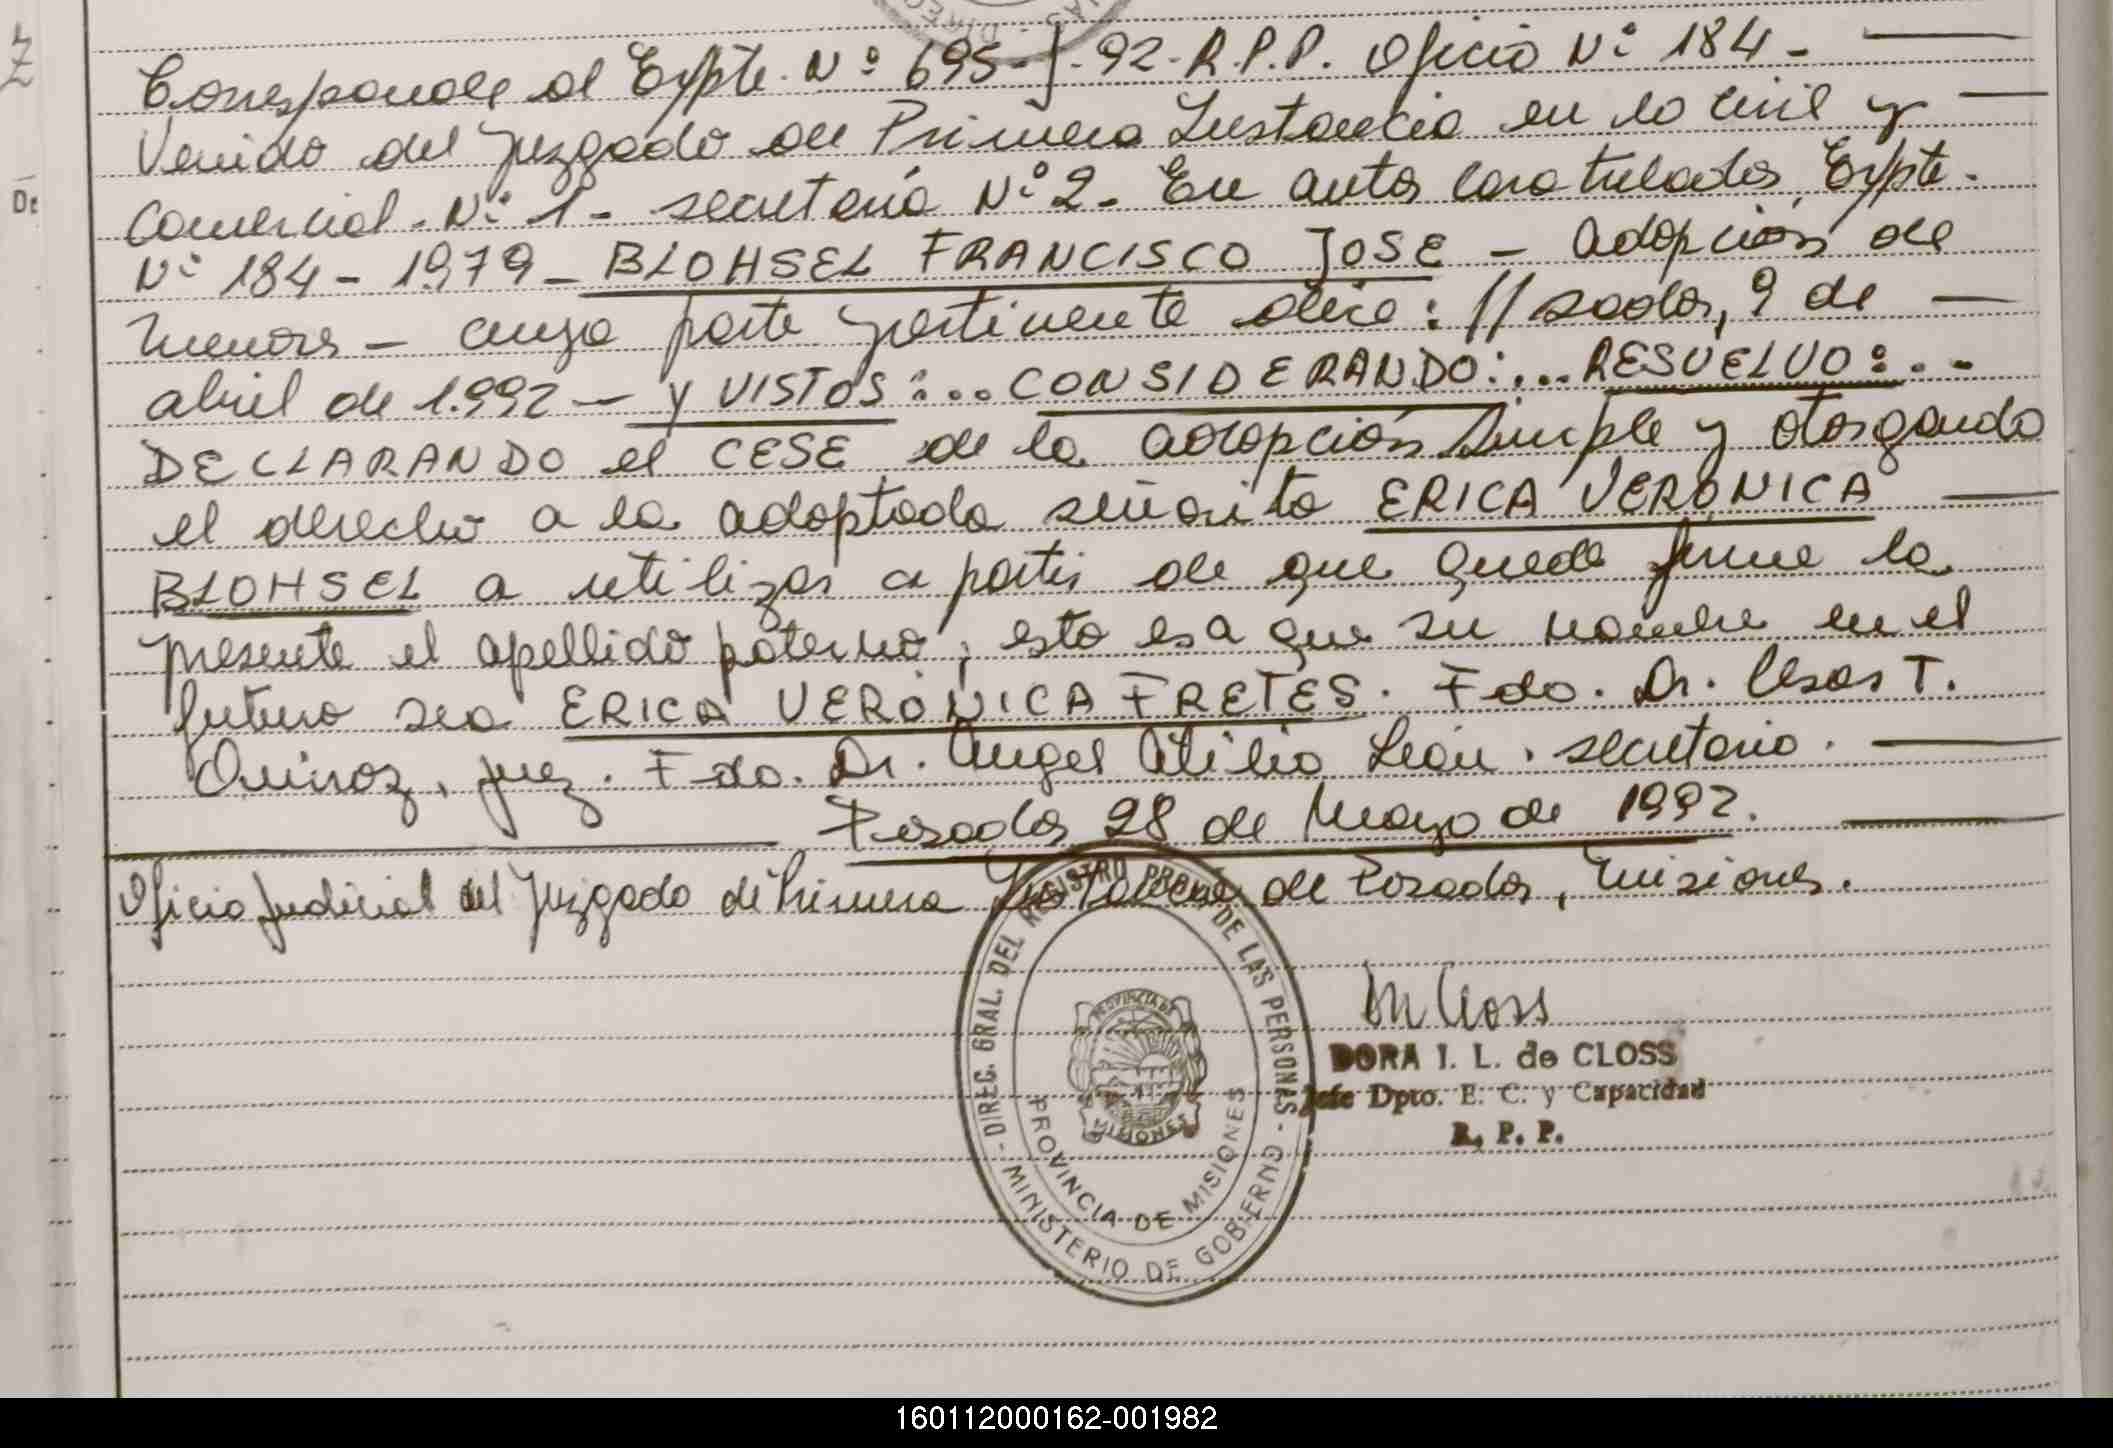 Corresponde al Expte. Nº 695-J-92-R.P.P. Oficio Nº 184-
Venido del Juzgado de Primera Instancia en lo Civil y
Comercial - Nº 1 - secretaría Nº 2 - En autos caratulados, Expte.
Nº 184 - 1979 - BLOHSEL FRANCISCO JOSE - adopción de
menores - cuya parte pertinente dice: //sadas, 9 de
abril de 1.992 - y VISTOS:... CONSIDERANDO:... RESUELVO:...
DECLARANDO el CESE de la adopción simple y otorgando
el derecho a la adoptada señorita ERICA VERÓNICA
BLOHSEL a utilizar a partir de que quede firme la
presente el apellido paterno, esto es a que su nombre en el
futuro sea ERICA VERÓNICA FRETES. Fdo. Dr. Cesar T.
Quiroz, juez. Fdo. Dr. Angel Atilio León. secretario.
Posadas 28 de Mayo de 1992.
Oficio Judicial del Juzgado de Primera Instancia de Posadas, Misiones.
DIREC. GRAL. DEL REGISTRO PROV. DE LAS PERSONAS - MINISTERIO DE GOBIERNO -
PROVINCIA DE MISIONES
PROVINCIA DE
MISIONES
DORA I. L. de CLOSS
Jefe Dpto. E. C. y Capacidad
R. P. P.
160112000162-001982